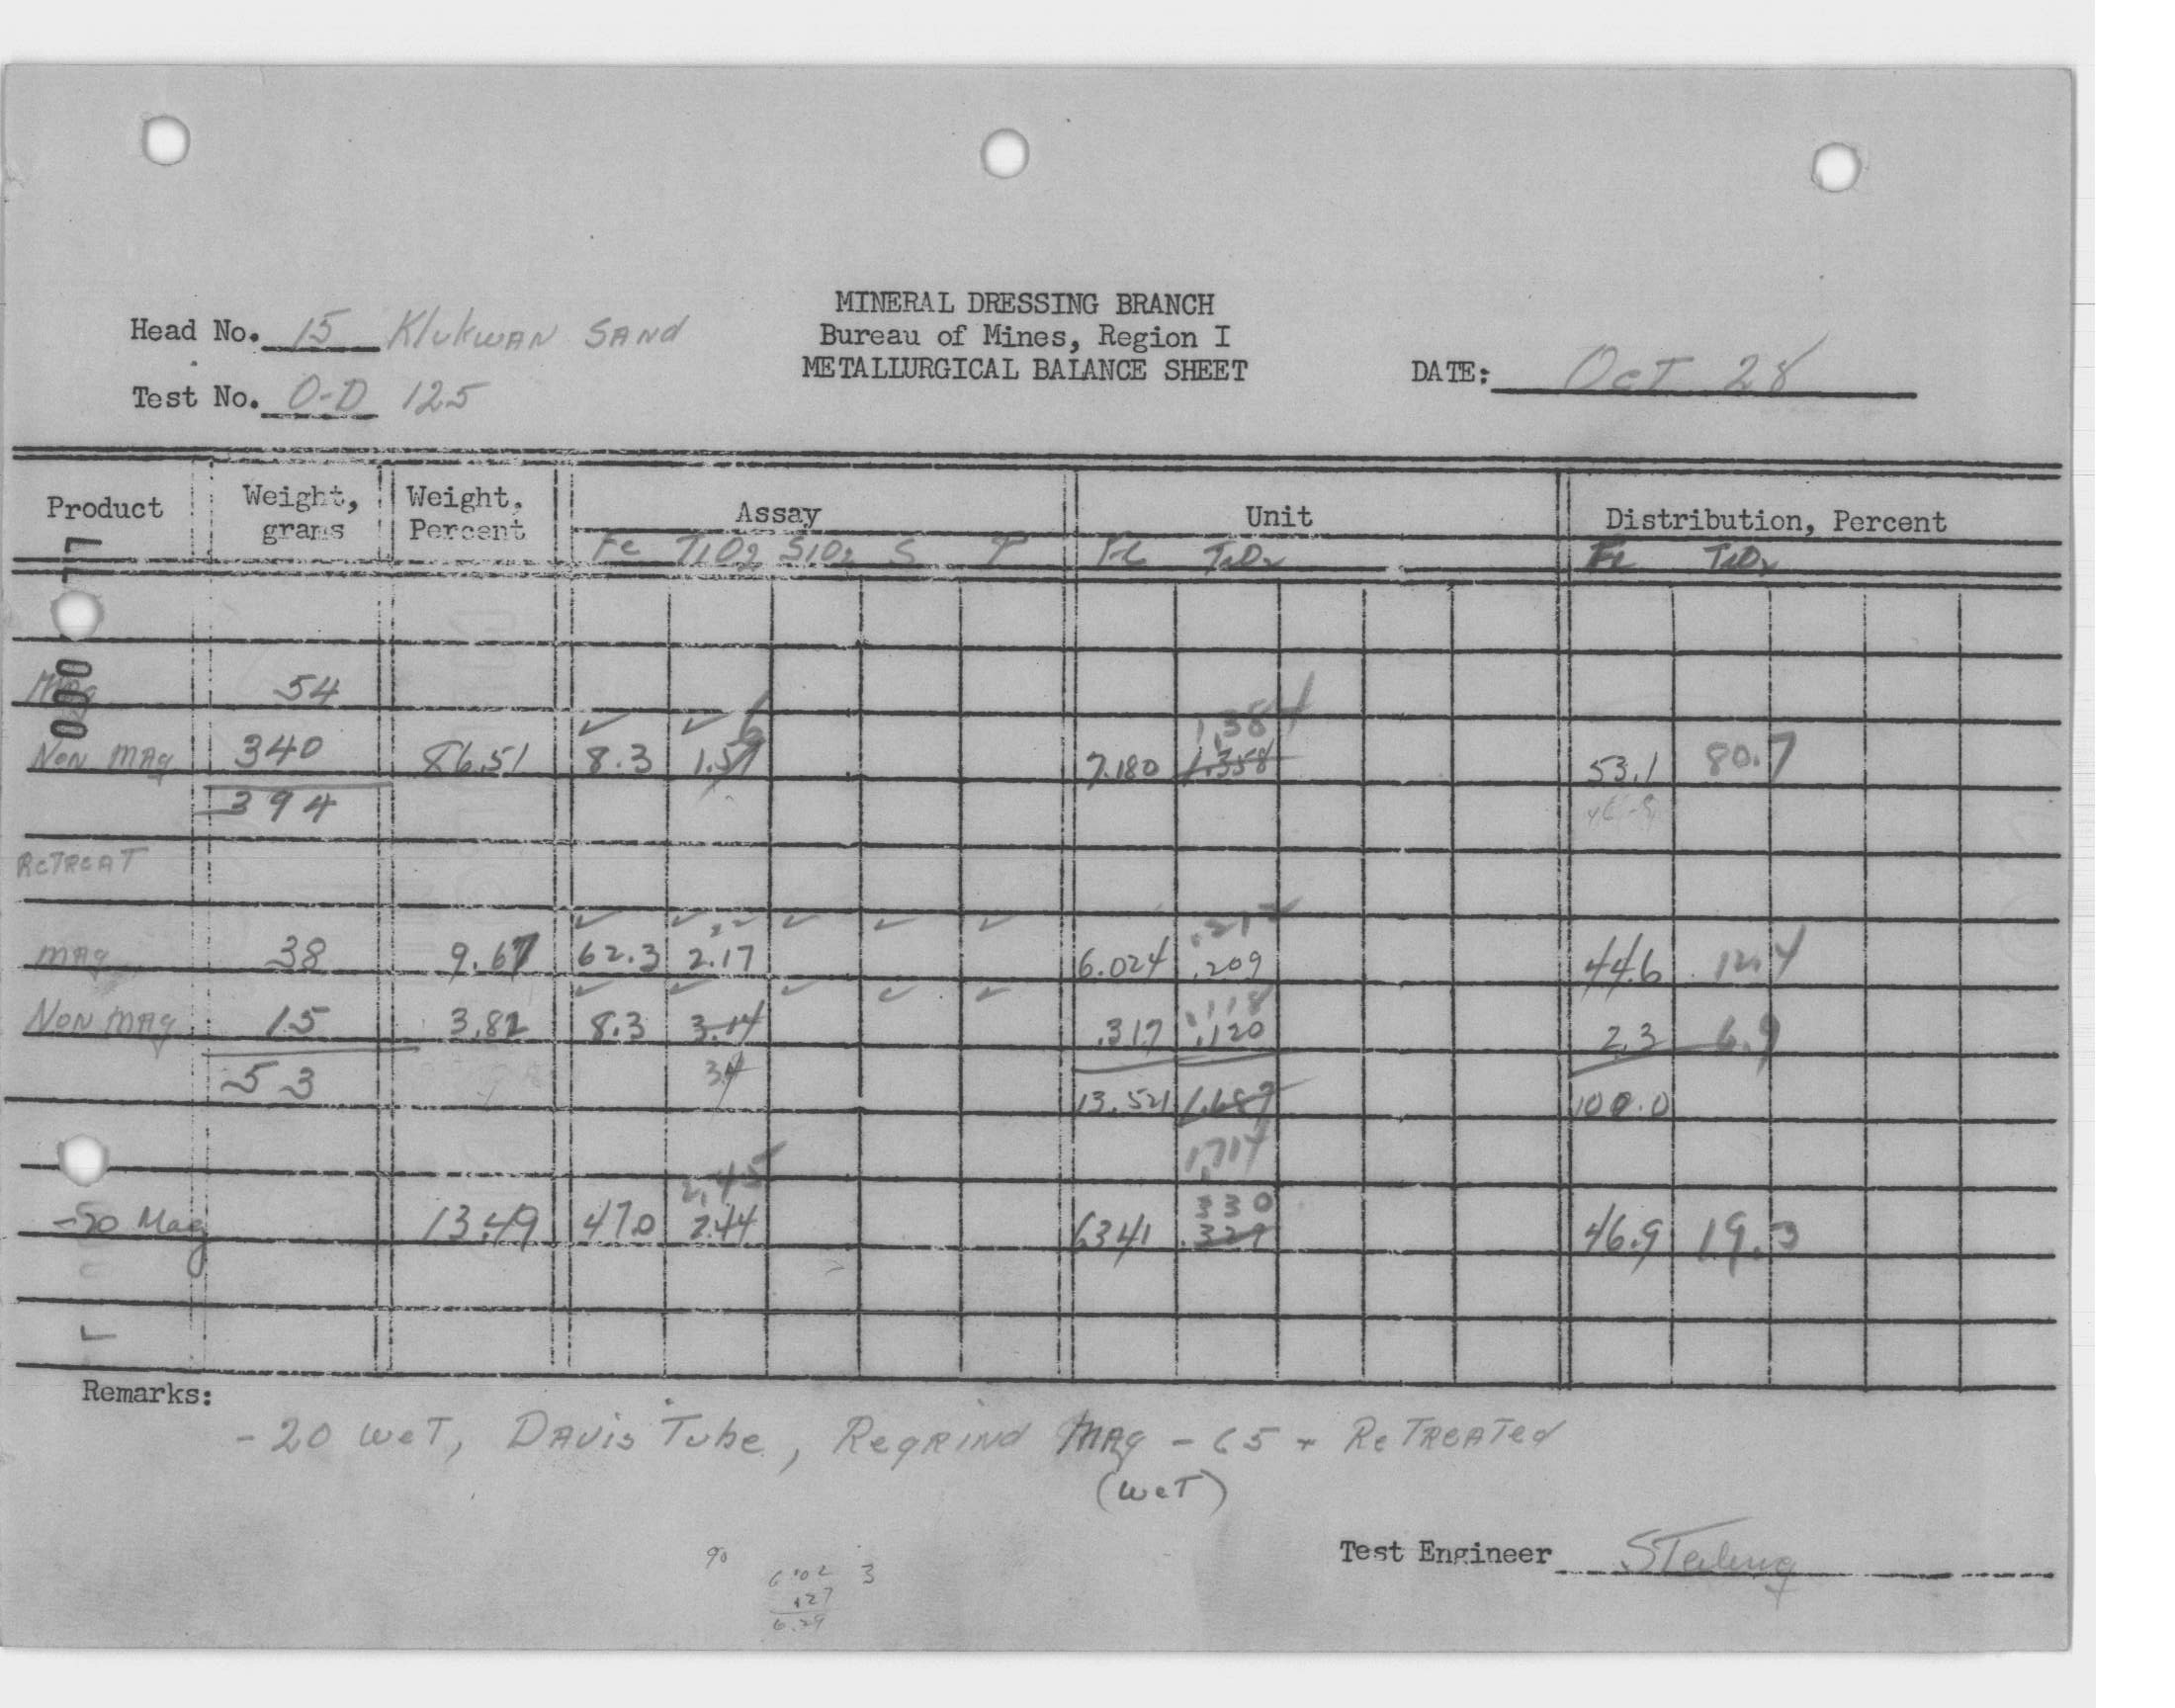 MINERAL DRESSING BRANCH
Head No. 15 Klukwan Sand
Bureau of Mines, Region I
METALLURGICAL BALANCE SHEET
DATE: Oct 28
Test No. O-D 125
Product Weight, grams Weight, Percent Assay Unit Distribution, Percent
Fe TiO2 SiO2 S P Fe TiO2 Fe TiO2
Mag 54
1.384
Non Mag 340 86.51 8.3 1.57 7.180 1.358 53.1 80.7
394
Retreat
22 .212
Mag 38 9.67 62.3 2.17 6.024 .209 44.6 12.4
.118
Non Mag 15 3.82 8.3 3.14 .317 .120 2.3 6.9
53 3.1 13.521 1.687 100.0
1.714
2.45 330
-20 Mag 13.49 47.0 2.44 6341 .329 46.9 19.3
Remarks:
-20 wet, Davis Tube, Regrind Mag -65 + Retreated
(wet)
Test Engineer Sterling
90
6.02 3
.27
6.29